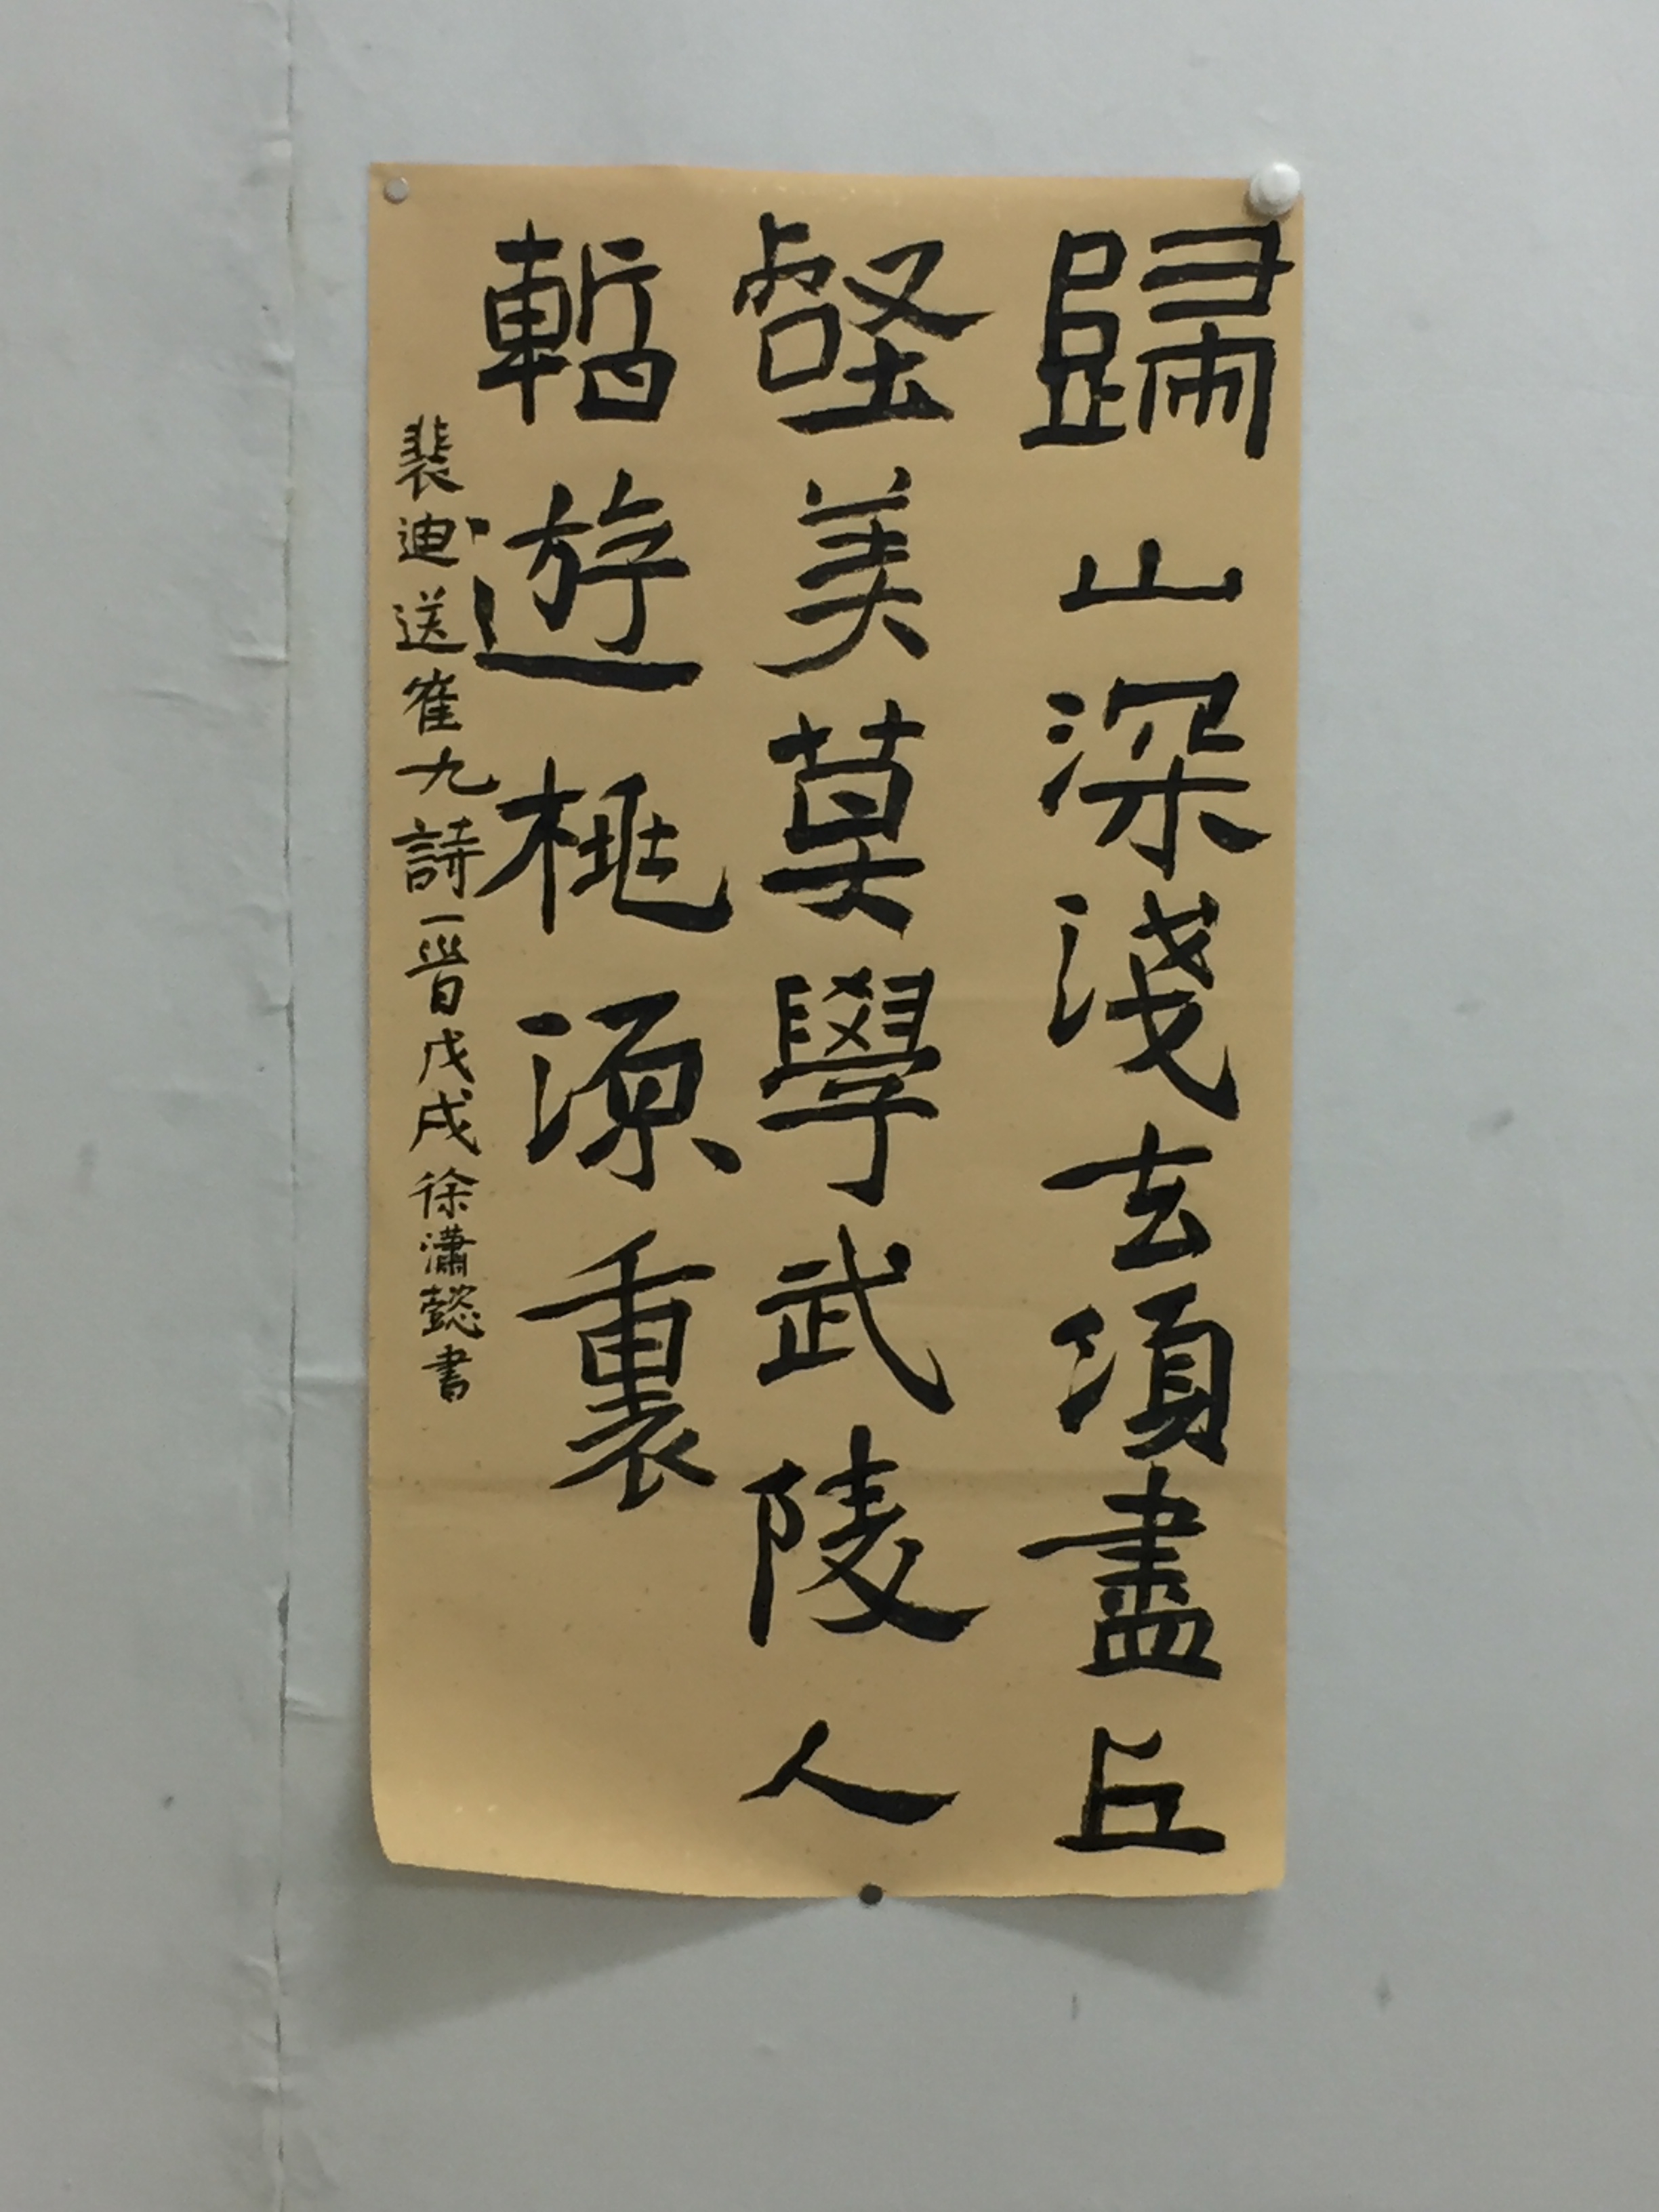 歸山深淺去須盡丘
壑美莫學武陵人
暫遊桃源裏
裴迪送崔九詩一首戊戌徐瀟懿書